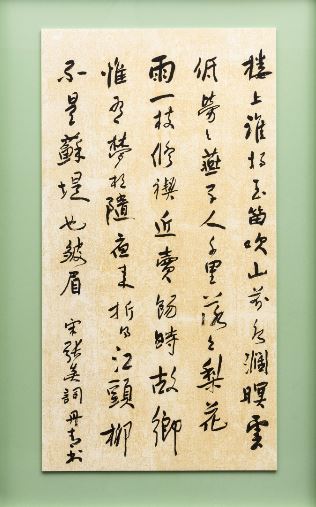 樓上誰將玉笛吹山前水濶暝雲
低勞々燕子人千里落々梨花
雨一枝修禊近賣餳時故鄉
惟有夢相隨夜来折得江頭柳
不是蘇堤也皺眉 宋張炎詞丹青书